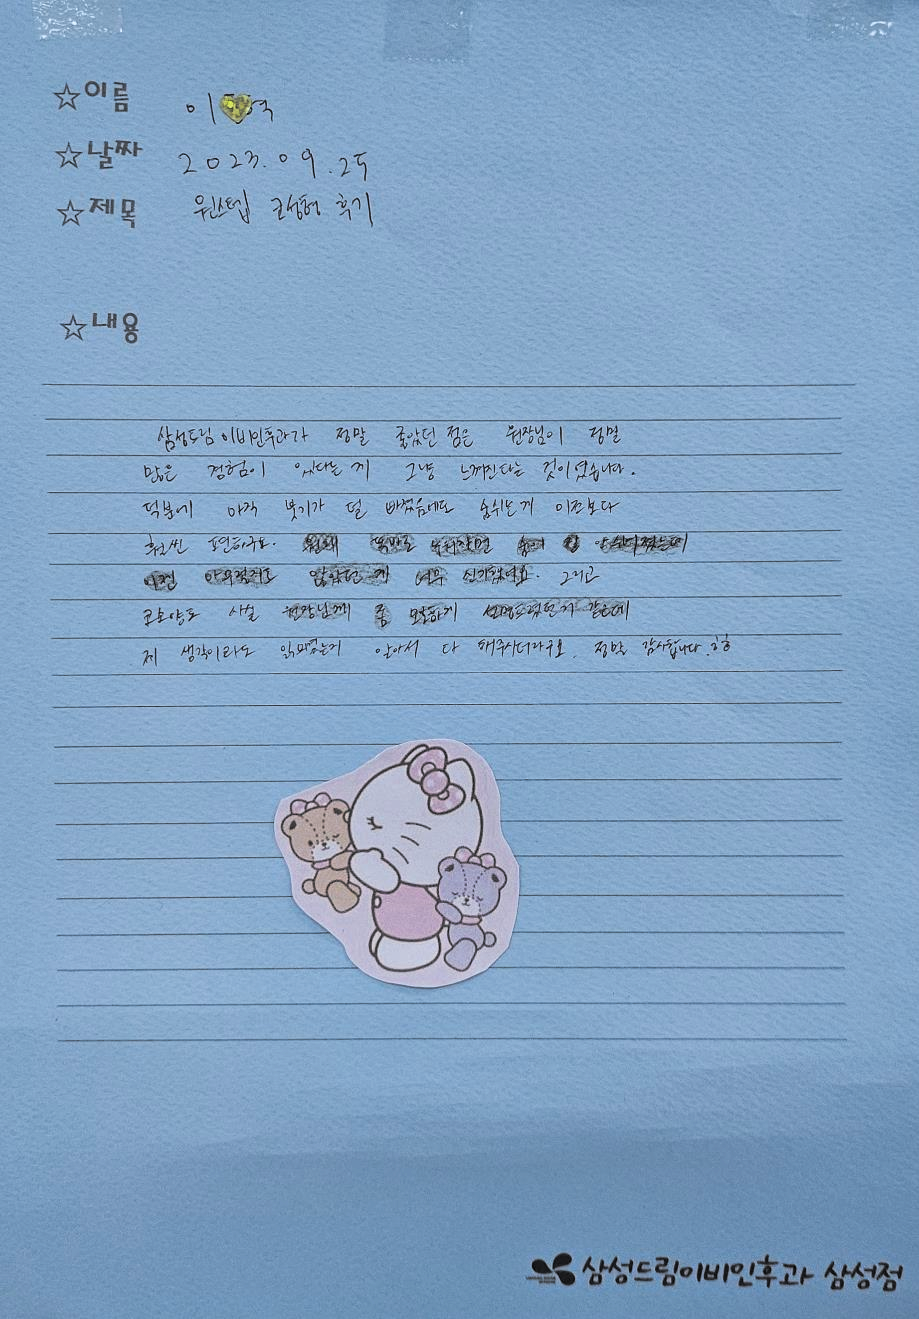 ☆이름 이💛억
☆날짜 2023.09.25
☆제목 원스텝 코성형 후기
☆내용
삼성드림이비인후과가 정말 좋았던 점은 원장님이 정말
많은 경험이 있다는게 그냥 느껴진다는 것이였습니다.
덕분에 아직 붓기가 덜 빠졌음에도 숨쉬는게 이전보다
훨씬 편하구요.
너무 신기했어요. 그리고
코모양도 사실 원장님께 좀 모호하게 설명드렸던거 같은데
제 생각이라도 읽으셨는지 알아서 다 해주시더라구요. 정말 감사합니다.ㅎㅎ
삼성드림이비인후과 삼성점